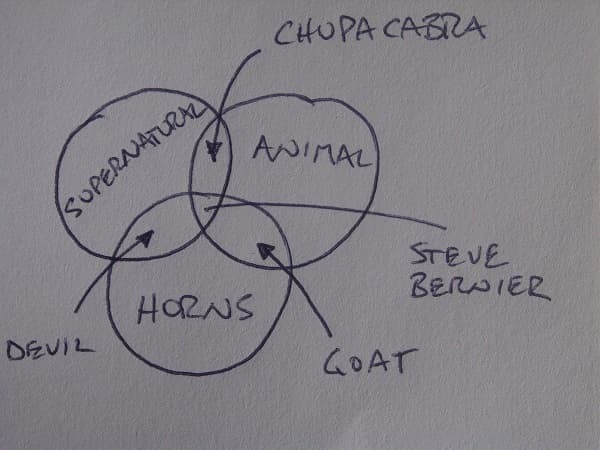 CHUPACABRA
SUPERNATURAL
ANIMAL
STEVE
BERNIER
HORNS
DEVIL
GOAT